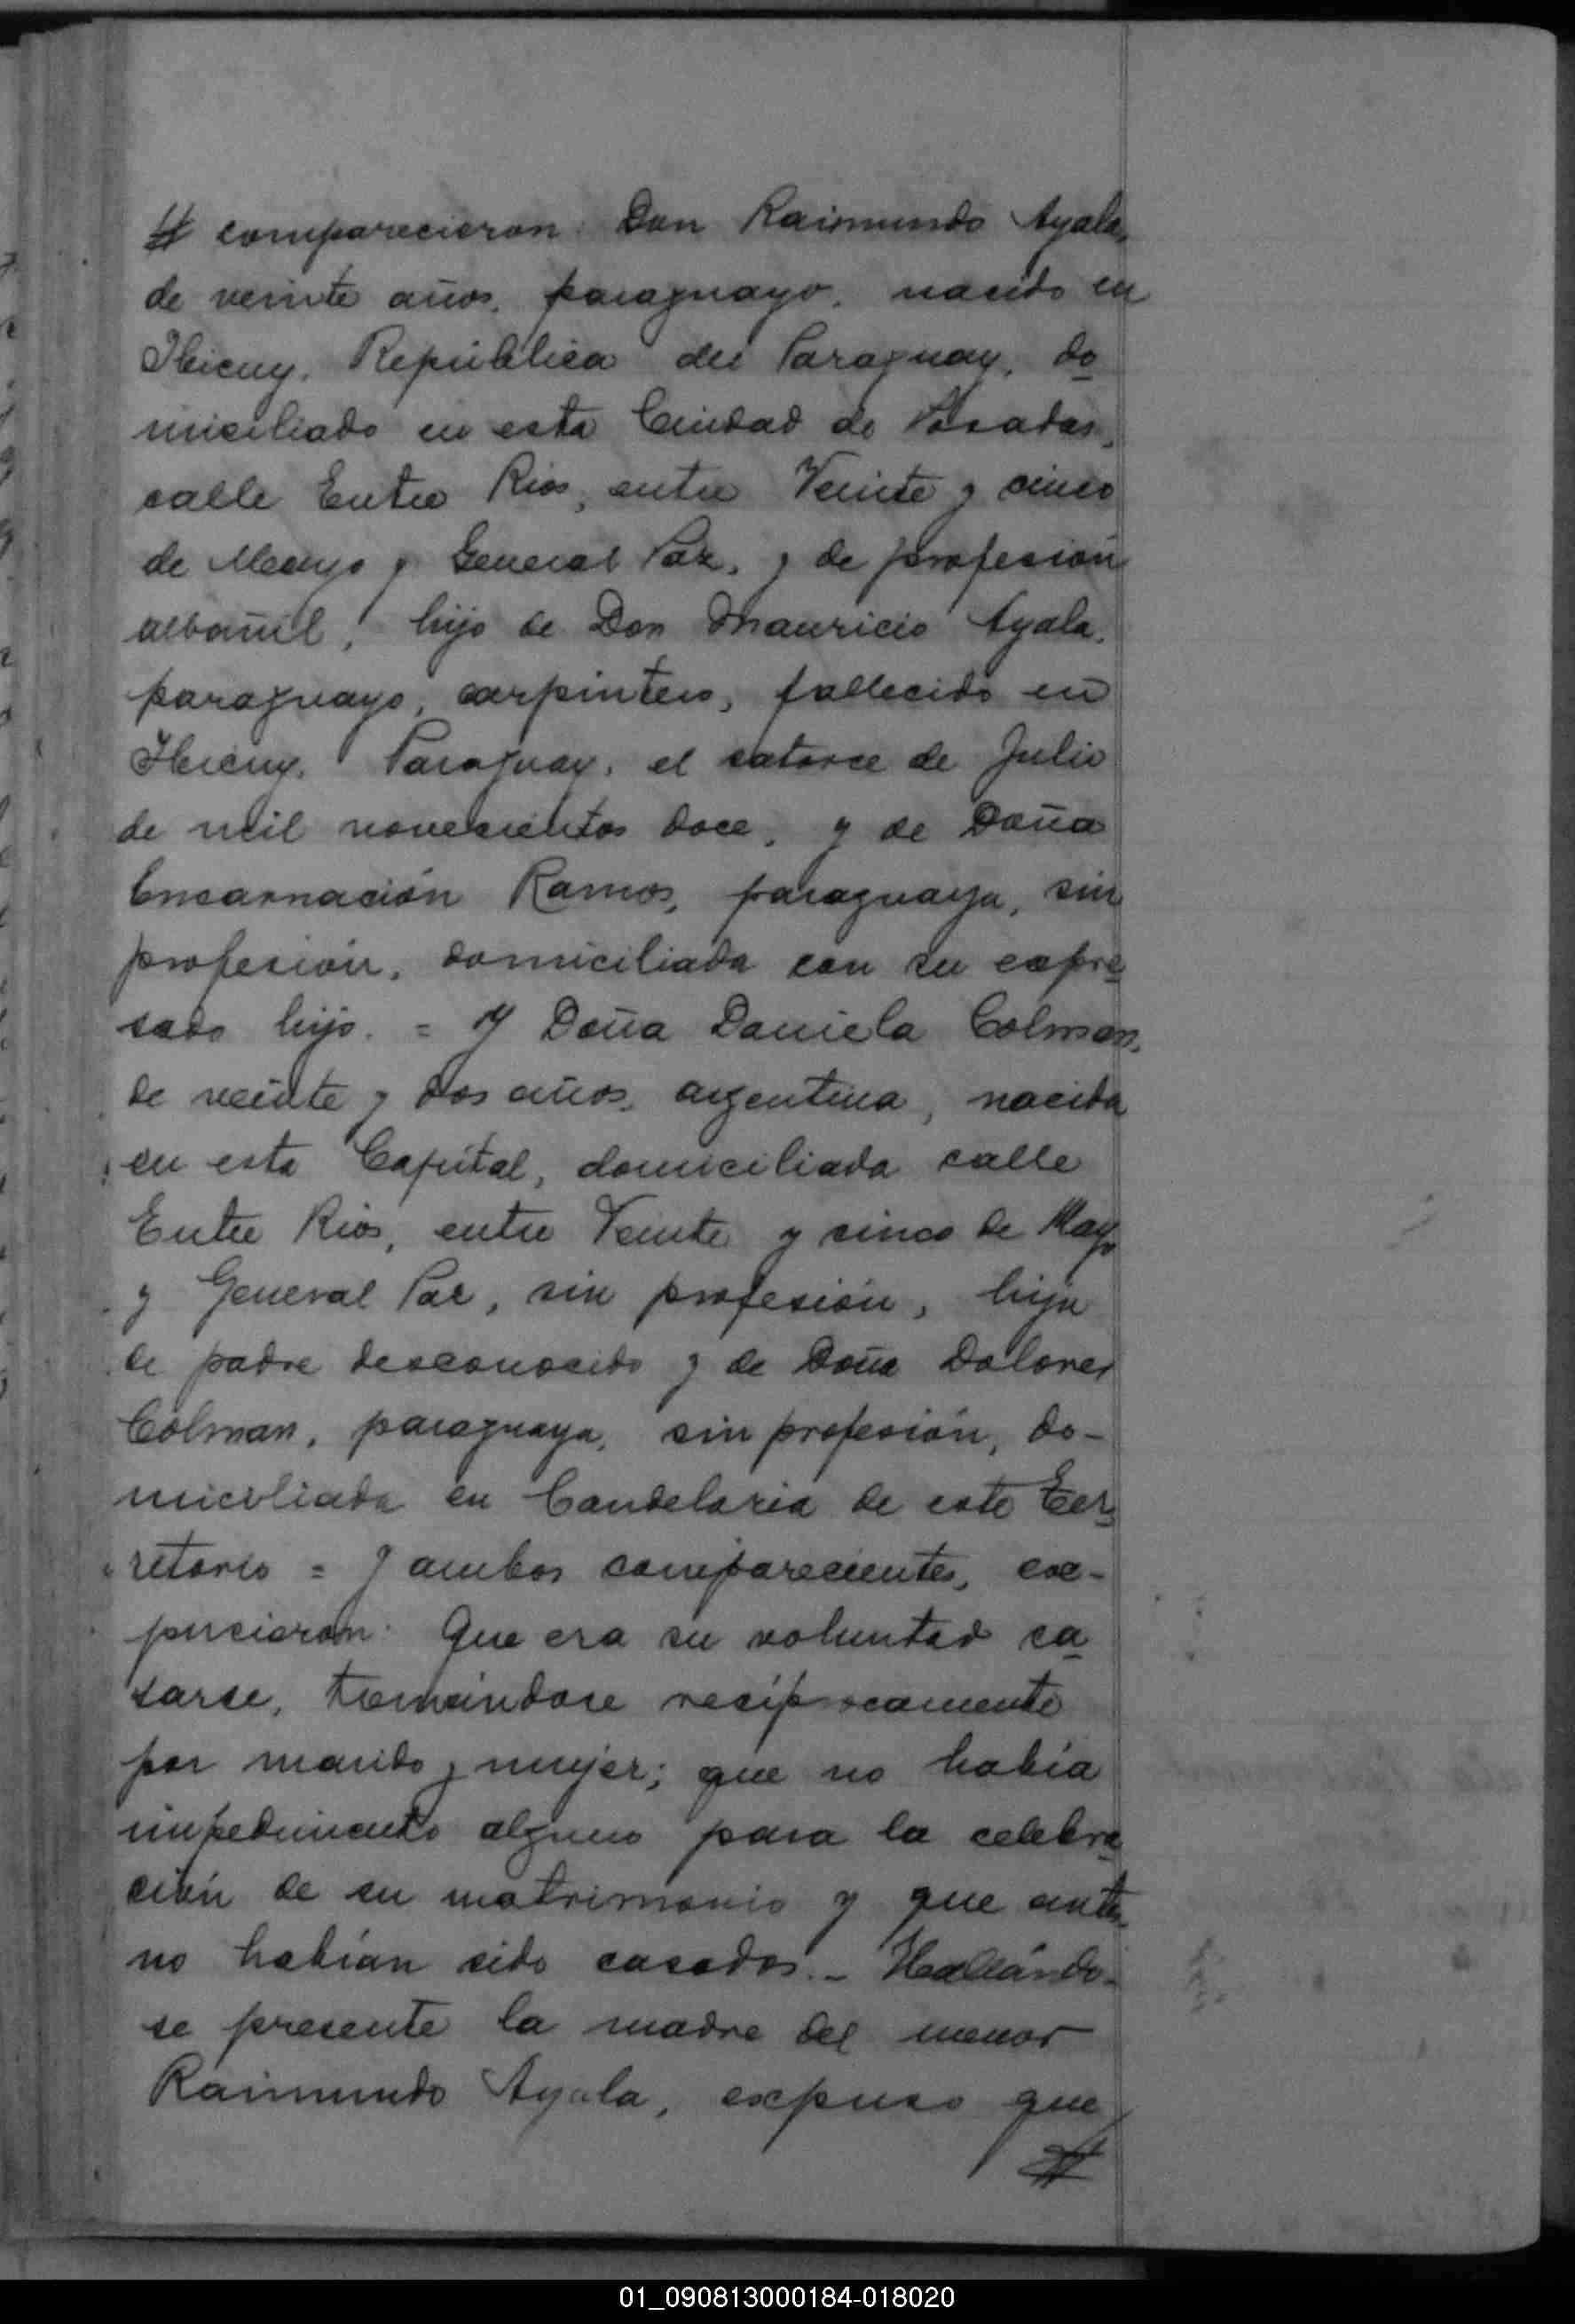 # comparecieron: Don Raimundo Ayala,
de veinte años, paraguayo, nacido en
Ibicuy, República del Paraguay, do
miciliado en esta Ciudad de Posadas,
calle Entre Rios, entre Veinte y cinco
de Mayo y General Paz, y de profesión
albañil, hijo de Don Mauricio Ayala,
paraguayo, carpintero, fallecido en
Ibicuy, Paraguay, el catorce de Julio
de mil novecientos doce, y de Doña
Encarnación Ramos, paraguaya, sin
profesión, domiciliada con su expre
sado hijo. = Y Doña Daniela Colman,
de veinte y dos años, argentina, nacida
en esta Capital, domiciliada calle
Entre Rios, entre Veinte y cinco de Mayo
y General Paz, sin profesión, hija
de padre desconocido y de Doña Dolores
Colman, paraguaya, sin profesión, do-
miciliada en Candelaria de este Ter
ritorio = Y ambos comparecientes, ex-
pusieron: Que era su voluntad ca
sarse, tomándose recíprocamente
por marido y mujer; que no había
impedimento alguno para la celebra
ción de su matrimonio y que antes
no habían sido casados. - Hallándo-
se presente la madre del menor
Raimundo Ayala, expuso que
#
01_090813000184-018020